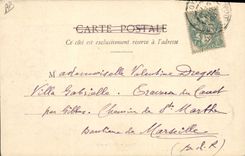 CARTE POSTALE
Ce côté est exclusivement réservé à l'adresse
Mademoiselle Valentine
Villa Gabrielle. Traverse du Canet
par Gibbes. Chemin de Ste Marthe
Banlieue de Marseille
(B.d.R)